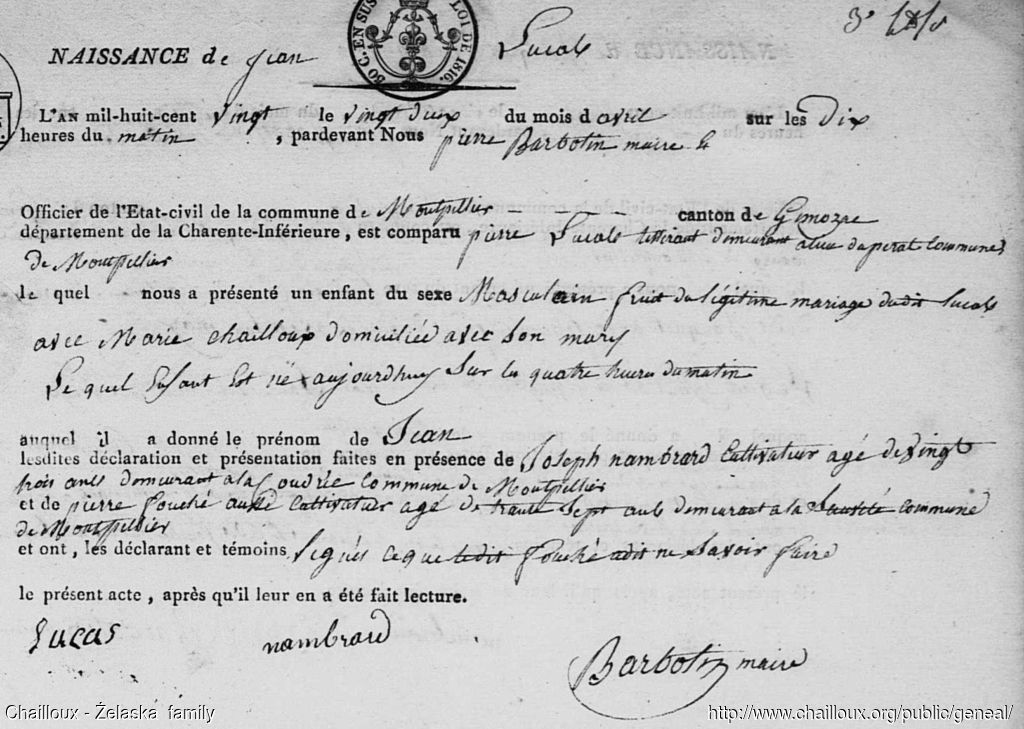 50 C. EN SUS LOI DE 1816.
NAISSANCE de Jean Lucas
L'AN mil-huit-cent vingt le vingt deux du mois d avril sur les Dix
heures du matin , pardevant Nous pierre Barbotin maire &
Officier de l'Etat-civil de la commune de Montpellier - - - - canton de Gemozac
département de la Charente-Inférieure, est comparu pierre Lucas demeurant commune
de Montpellier
le quel nous a présenté un enfant du sexe Masculain fruit du légitime mariage dudit Lucas
avec Marie chailloux domiciliée avec son mary
Le quel Enfant Est né aujourdhuy Sur les quatre heures du matin
auquel il a donné le prénom de Jean
lesdites déclaration et présentation faites en présence de Joseph nambrard Cultivateur agé de vingt
trois ans demeurant a la commune de Montpellier
et de pierre fouché aussi Cultivateur agé de trante Sept ans demeurant a la commune
de Montpellier
et ont, les déclarant et témoins Signés ce que ledit fouché a dit ne Savoir faire
le présent acte, après qu'il leur en a été fait lecture.
Lucas nambrard
Barbotin maire
Chailloux - Želaska family http://www.chailloux.org/public/geneal/